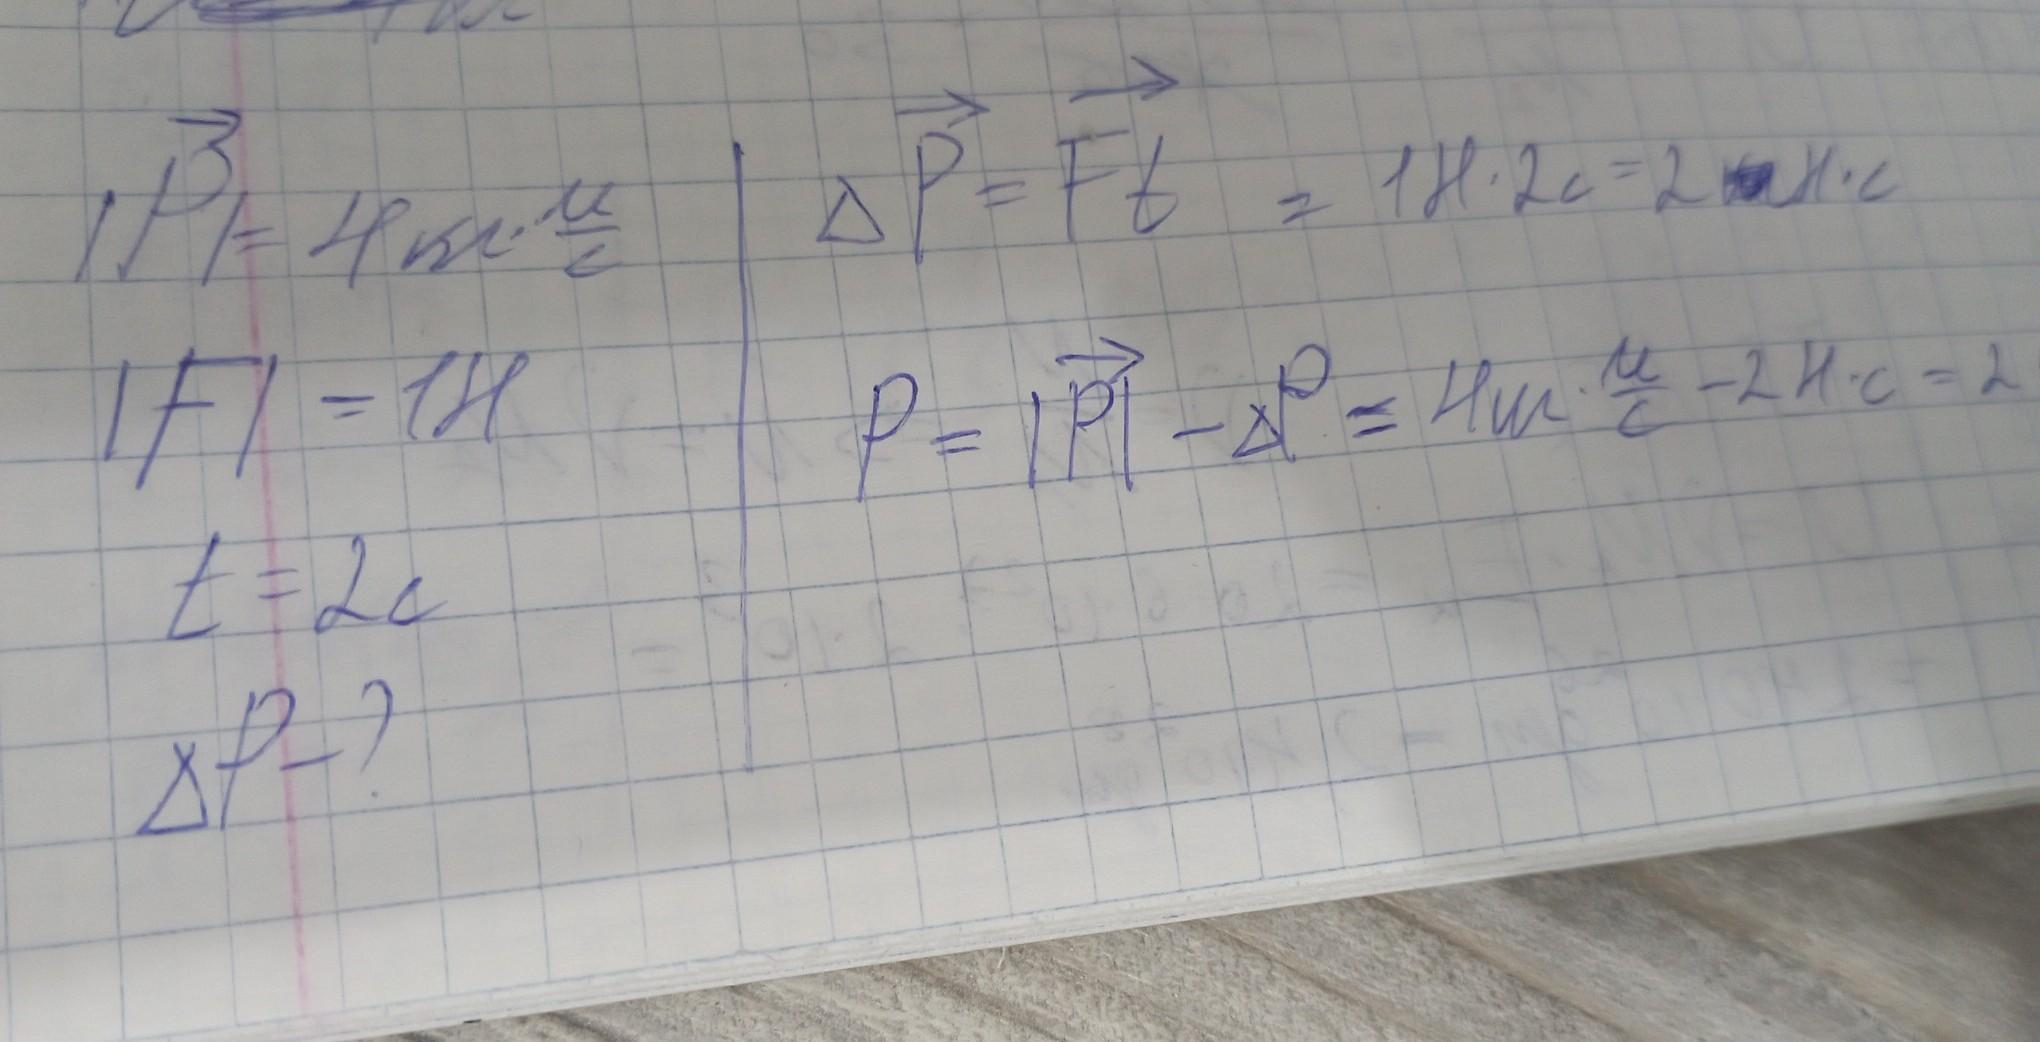 |P⃗| = 4 кг · м/с
|F| = 1Н
t = 2с
ΔP - ?
ΔP⃗ = F⃗t = 1Н · 2с = 2 Н · с
P = |P⃗| - ΔP = 4кг · м/с - 2Н · с = 2